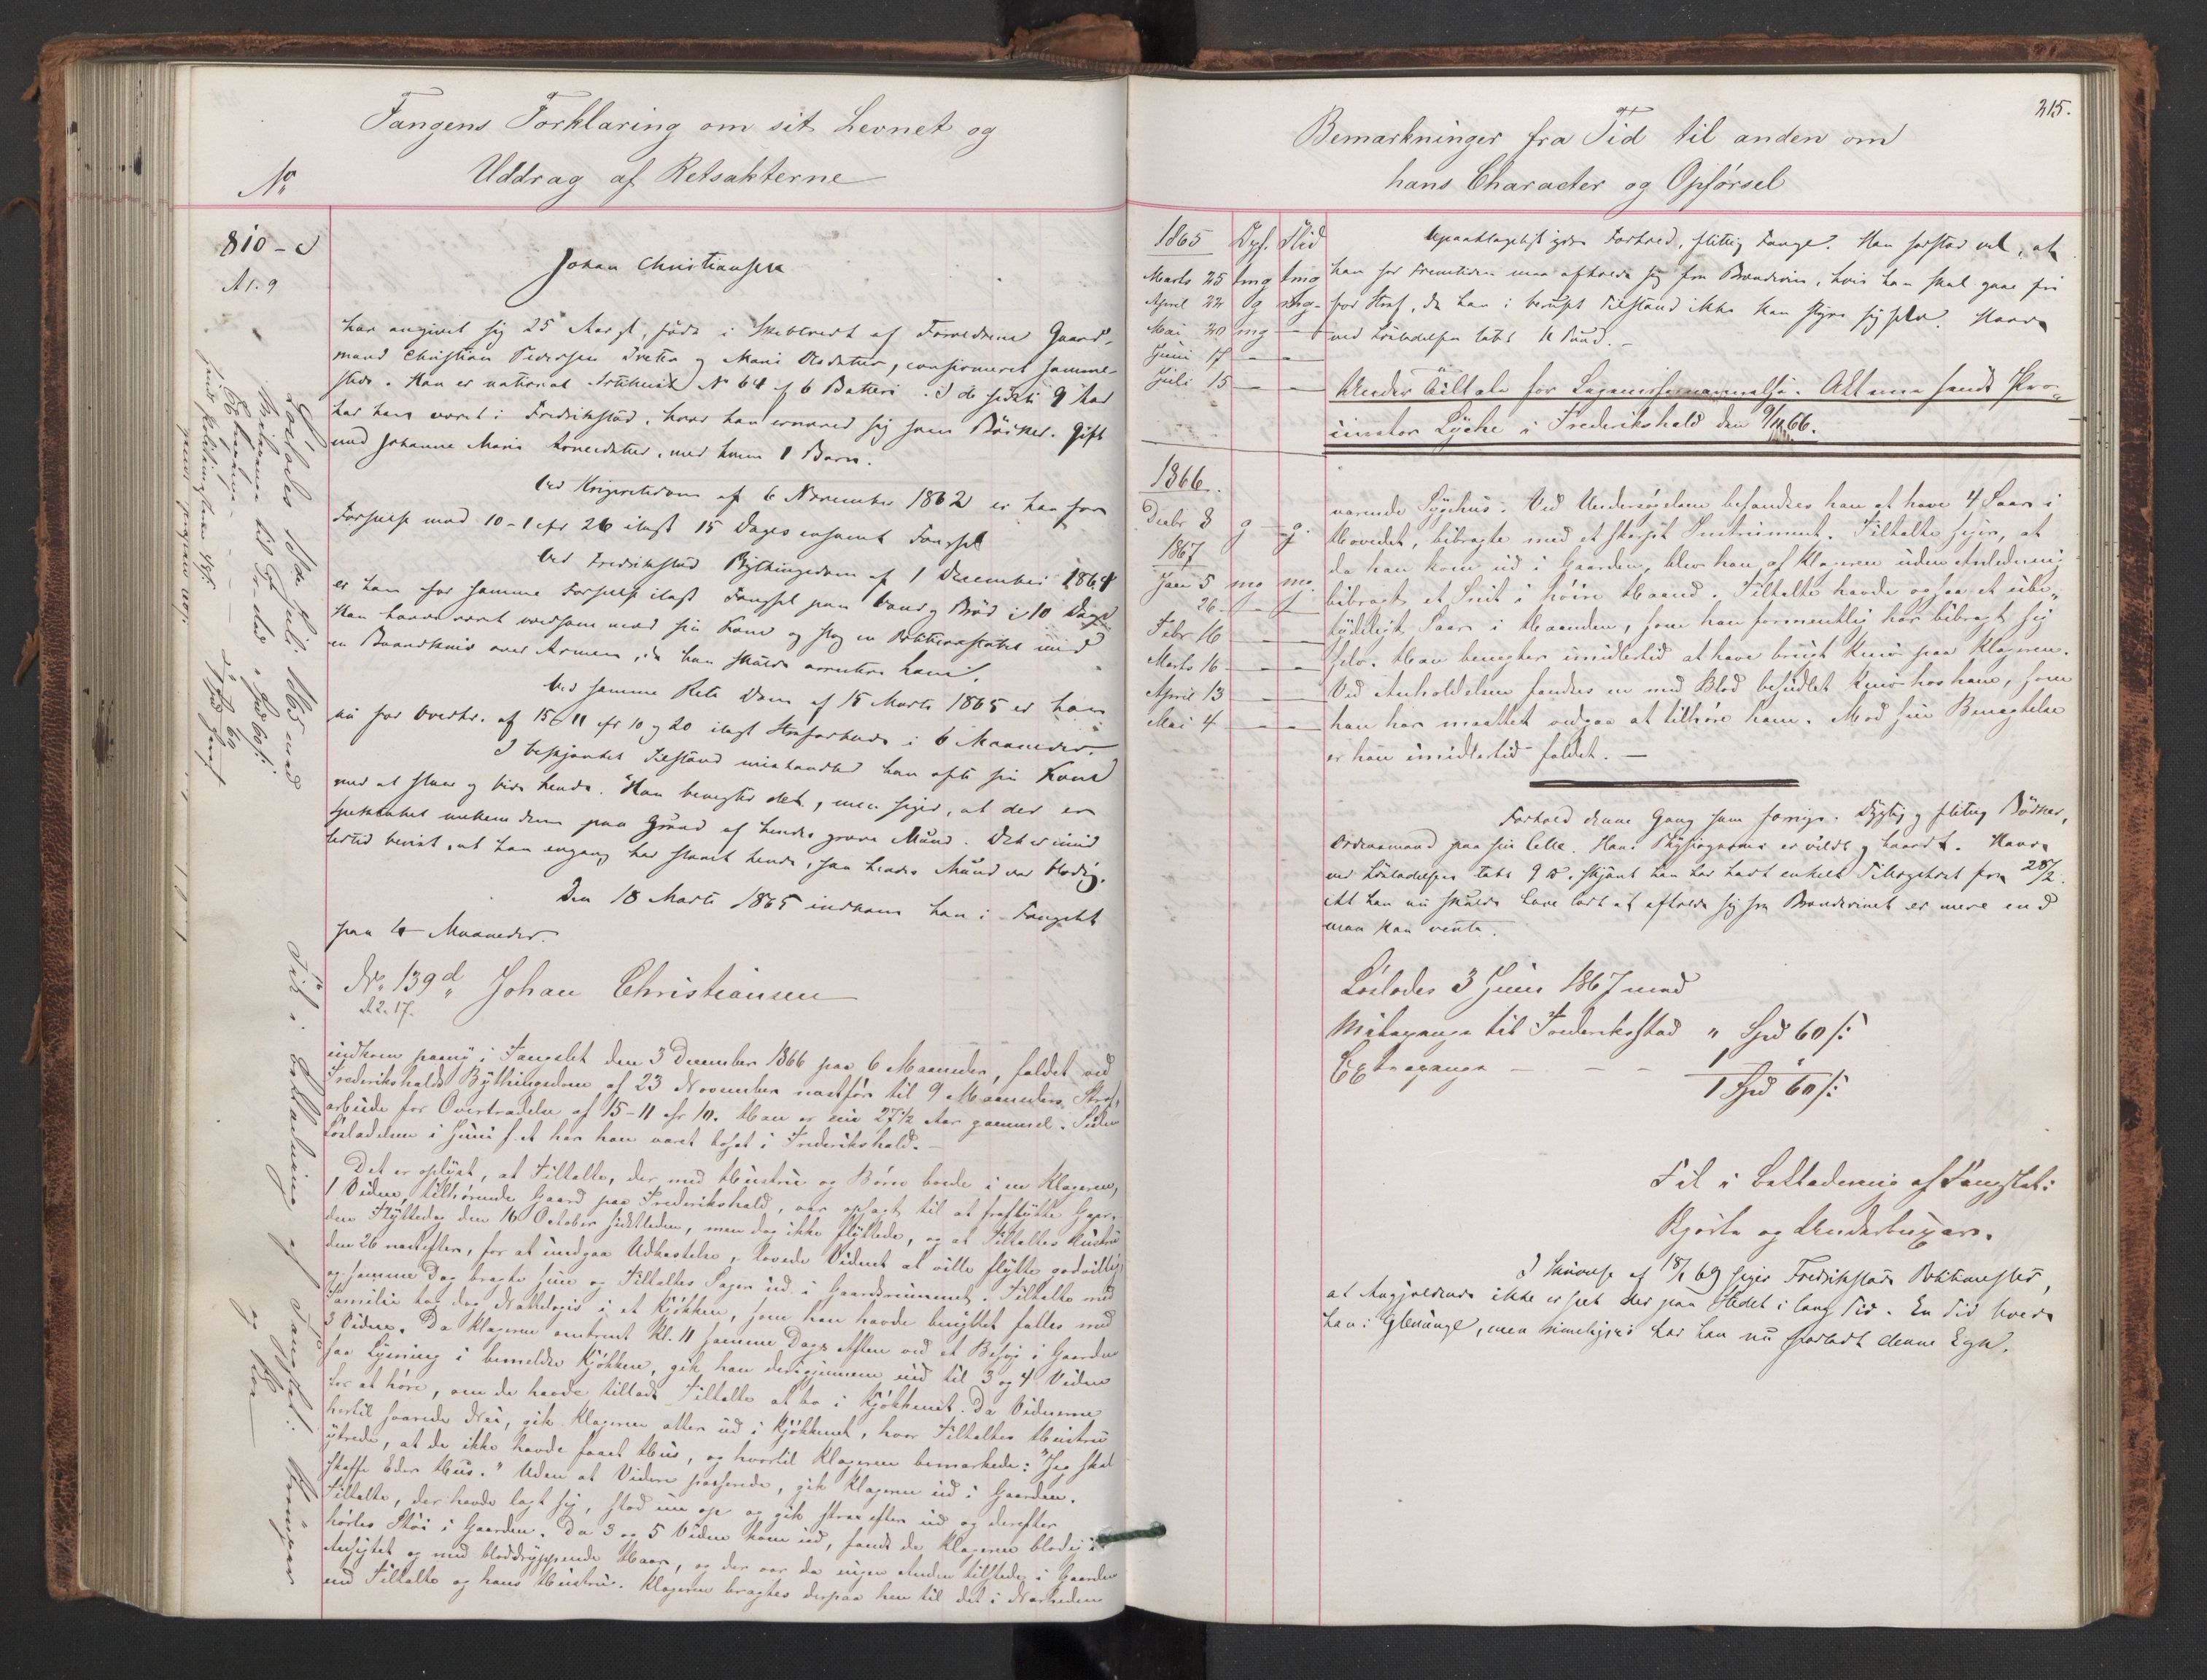 Fangens Forklaring om sit Levnet og
Uddrag af Retsakterne
No
810 - d
A 1. 9
Johan Christiansen
har angivet sig 25 Aar gl., født i Skibtvedt af Forældrene Gaard-
mand Christian Pedersen og Maria Olsdatter, confirmeret samme-
steds. Han er national Artillerist No 64 af 6 Batteri. I de sidste 9 Aar
har han været i Fredrikstad, hvor han ernæred sig som Bødker. Gift
med Johanne Marie, med hvem 1 Barn.
Ved Krigsretsdom af 6 November 1862 er han for
Forseelse mod 10-1 cfr 26 ilagt 15 Dages ensomt Fængsel
Ved Fredrikstad Bythingsdom af 1 December 1864
er han for samme Forseelse ilagt Fængsel paa Vand og Brød i 10 Dage
Han havde været voldsom mod sin Kone og slog en Politikonstabel med
en Brandskuis over Armen, da han skulde arrestere ham.
Ved samme Rets Dom af 18 Marts 1865 er han
nu for Overtr. af 15-11 cfr 10 og 20 ilagt Strafarbeide i 6 Maaneder.
I beskjænket Tilstand mishandled han ofte sin Kone
med at slaae og bide hende. Han benegter det, men siger, at der er
Spektakel mellem dem paa Grund af hendes grove Mund. Det er imid
lertid bevist, at han engang har slaaet hende, saa hendes Mund var blodig.
Den 18 Marts 1865 indkom han i Fængslet
paa 4 Maaneder.
No. 139 d Johan Christiansen
A 2. 17.
indkom paany i Fangslet den 3 December 1866 paa 6 Maaneder, faldet ved
Frederikshalds Bythingsdom af 23 November næstfør til 9 Maaneders Straf-
arbeide for Overtrædelse af 15-11 cfr 10. Han er nu 27½ Aar gammel. Siden
Løsladelsen i Juni f. A. har han været bosat i Frederikshald. –
Det er oplyst, at Tiltalte, der med Hustru og Børn boede i en Klageren,
1 Vidne, tilhørende Gaard paa Frederikshald, var opsagt til at fraflytte
den Flyttedag den 14 October sidstleden, men dog ikke flyttede, og at Tiltaltes Hustru
den 26 næstefter, for at undgaa Udkastelse, lovede Vidnet at ville flytte godvillig,
og samme Dag bragte hun og Tiltaltes Sager ud i Gaardsrummet. Tiltalte med
Familie tog dog Natlogis i et Kjøkken, som han havde benyttet fælles med
3 Vidne. Da Klageren omtrent Kl. 11 samme Dags Aften ved et Besøg i Gaarden
saa Lysning i bemeldte Kjøkken, gik han derigjennem ind til 3 og 4 Vidne
for at høre, om de havde tilladt Tiltalte at bo i Kjøkkenet. Da Vidnerne
hertil svarede Nei, gik Klageren atter ud i Kjøkkenet, hvor Tiltaltes Hustru
ytrede, at de ikke havde faaet Hus, og hvortil Klageren bemærkede: "Jeg skal
skaffe Eder Hus." Uden at Videre passerede, gik Klageren ud i Gaarden.
Tiltalte, der havde lagt sig, stod nu op og gik strax efter ud og derefter
hørtes Støi i Gaarden. Da 3 og 5 Vidne kom ud, fandt de Klageren blodig i
Ansigtet og med bloddryppende Haar, og der var da ingen Anden tilstede i Gaarden
end Tiltalte og hans Hustru. Klageren bragtes derpaa hen til det i Nærheden
Løslodes 18de Juli 1865 med
Extrapenge
Til i Erstatning af Fangstøi:
215.
Bemærkninger fra Tid til anden om
hans Character og Opførsel
1865 Opf. Flid
Marts 25 tmg tmg
April 22 g mg
Mai 20 mg –
Juni 17 – –
Juli 15 – –
Upaaklageligt godt Forhold, flittig Fange. Han forstod vel, at
han for Fremtiden maa afholde sig fra Brændeviin, hvis han skal gaae fri
for Straf, da han i beruset Tilstand ikke kan styre sig selv. Havde
ved Løsladelsen tabt 11 Pund. –
Under Tiltale for Legemsfornærmelse. Akterne sendt Pro-
curator Lyche i Frederikshald den 9/11 66.
1866.
Decbr 8 g g.
1867
Jan 5 mg mg.
26 – –
Febr 16 – –
Marts 16 – –
April 13 – –
Mai 4 – –
værende Sygehus. Ved Undersøgelsen befandtes han at have 4 Saar i
Hovedet, bibragte med et skarpt Instrument. Tiltalte siger, at
da han kom ud i Gaarden, blev han af Klageren uden Anledning
bibragt et Snit i høire Haand. Tiltalte havde ogsaa et ube-
tydeligt Saar i Haanden, som han formentlig har bibragt sig
selv. Han benegter imidlertid at have brugt Kniv paa Klageren.
Ved Anholdelsen fandtes en med Blod besudlet Kniv hos ham, som
han har maattet vedgaa at tilhøre ham. Mod sin Benægtelse
er han imidlertid fældet. –
Forhold denne Gang som forrige. Dygtig og flittig Bødker,
Ordensmand paa sin Celle. Hans Physiognomi er vildt og haardt. Havde
ved Løsladelsen tabt 9 ℔, skjønt han har havt enkelt Tillægskost fra 28/2.
At han nu skulde have lært at afholde sig fra Brændevinet er mere end
man kan vente.
Løslodes 3 Juni 1867 med
Reisepenge til Frederiksstad " Spd 60 s:
Extrapenge – – – 1 "
1 Spd 60 s:
Til i Erstatning af Fangstøi:
Kjorte og Underbuxer.
I Skrivelse af 18/1 69 siger Fredrikstads Politimester,
at Angjældende ikke er seet der paa Stedet i lang Tid. En Tid boede
han i Glemminge, men rimeligvis har han nu forladt denne Egn.